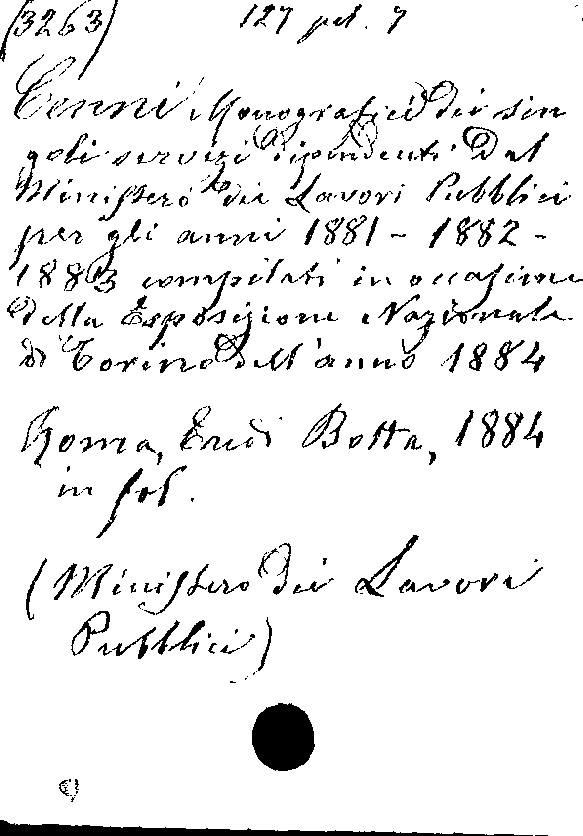 (3263) 127 pel. 7
Cenni Monografici dei sin
goli servizi dipendenti dal
Ministero dei Lavori Pubblici
per gli anni 1881 - 1882 -
1883 compilati in occasione
della Esposizione Nazionale
di Torino dell'anno 1884
Roma, Eredi Botta, 1884
in fol.
(Ministero dei Lavori
Pubblici)